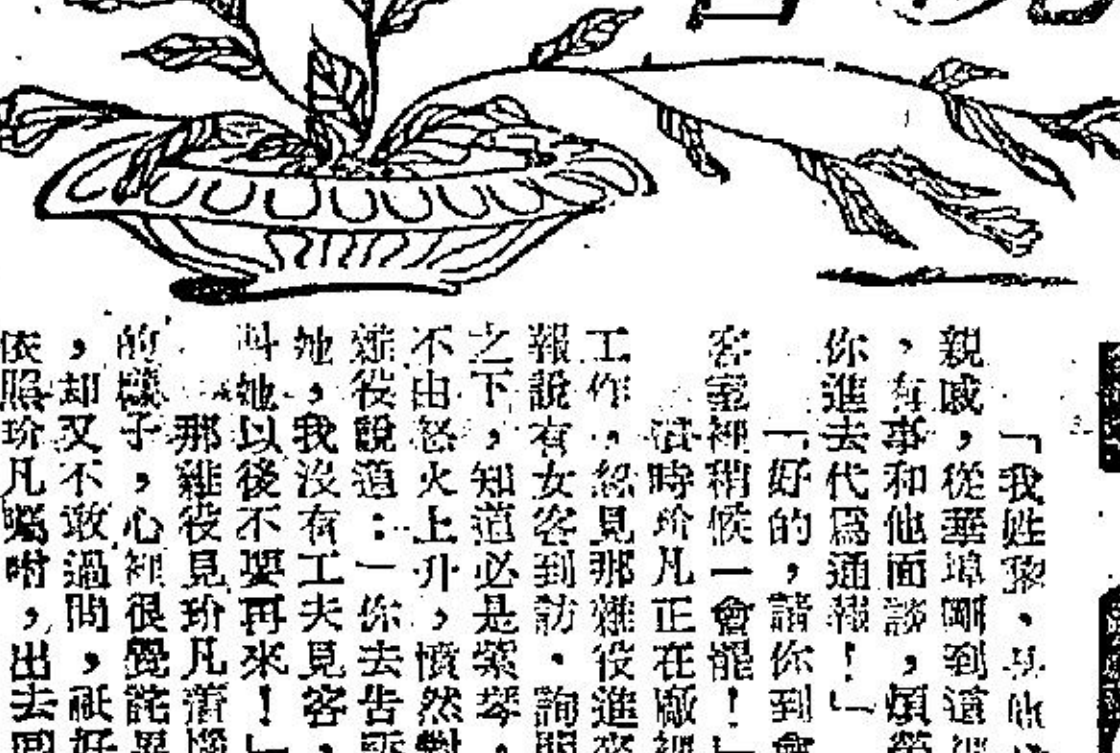 「我姓黎，
親戚，從華埠剛到這
，有事和他面談，煩
你進去代爲通報！」
「好的，請你到會
客室裡稍候一會罷！」
這時玠凡正在廠裡
工作，忽見那雜役進來
報說有女客到訪。詢明
之下，知道必是紫琴
不由怒火上升，憤然對
雜役說道：「你去告訴
她，我沒有工夫見客，
叫她以後不要再來！」
那雜役見玠凡
的樣子，心裡很覺詫異
，却又不敢過問，祇好
依照玠凡囑咐，出去回